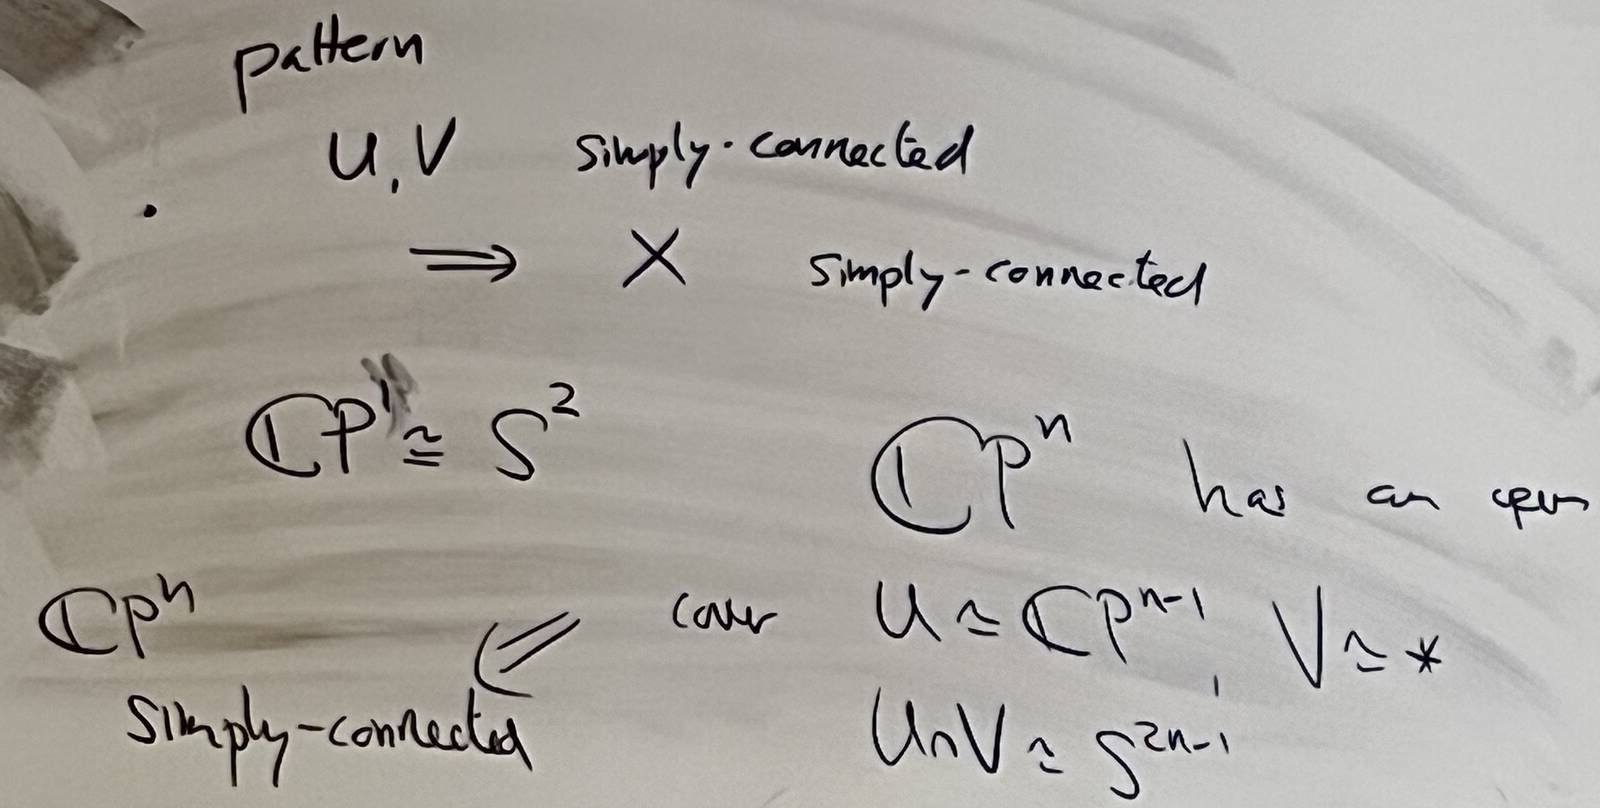 pattern
U, V simply-connected
⟹ X simply-connected
ℂP¹ ≅ S²
ℂPⁿ has an open
cover U ≃ ℂPⁿ⁻¹, V ≃ *
U∩V ≃ S²ⁿ⁻¹
⟸
ℂPⁿ
simply-connected